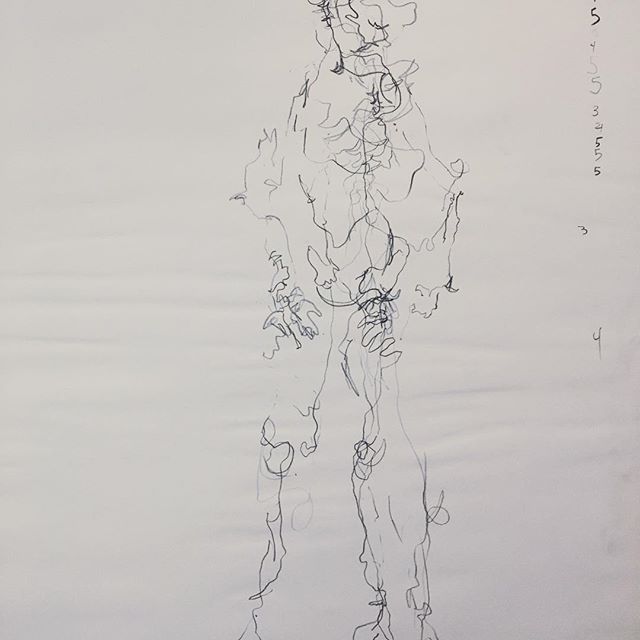 5
4
5
5
3
4
5
5
5
3
4